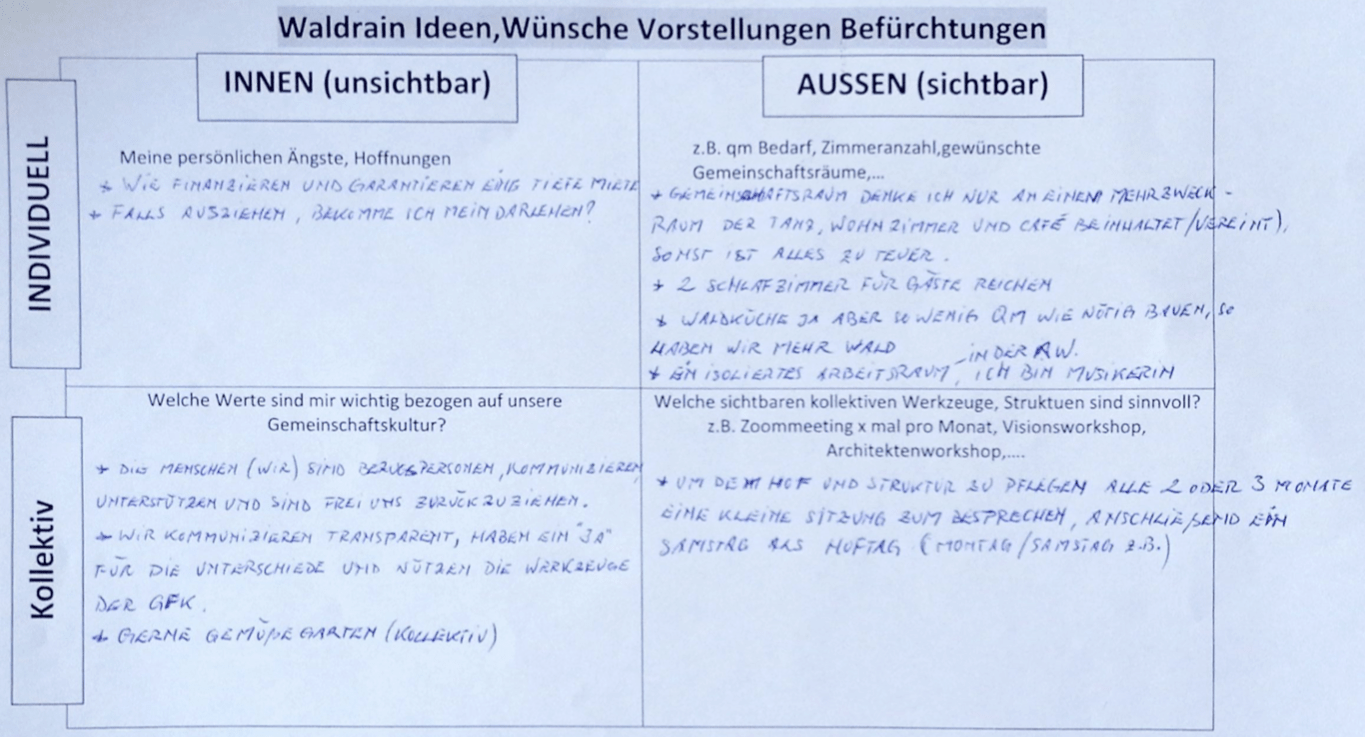 Waldrain Ideen,Wünsche Vorstellungen Befürchtungen
INNEN (unsichtbar)
AUSSEN (sichtbar)
INDIVIDUELL
Meine persönlichen Ängste, Hoffnungen
* WIE FINANZIEREN UND GARANTIEREN EINE TIEFE MIETE
* FALLS AUSZIEHEN, BEKOMME ICH MEIN DARLEHEN?
z.B. qm Bedarf, Zimmeranzahl,gewünschte
Gemeinschaftsräume,...
* GEMEINSCHAFTSRAUM DENKE ICH NUR AN EINEN MEHRZWECK-
RAUM DER TANZ, WOHNZIMMER UND CAFÉ BEINHALTET/VEREINT),
SONST IST ALLES ZU TEUER.
* 2 SCHLAFZIMMER FÜR GÄSTE REICHEN
* WALDKÜCHE JA ABER SO WENIG QM WIE NÖTIG BAUEN, SO
HABEN WIR MEHR WALD
IN DER AW.
* EIN ISOLIERTES ARBEITSRAUM, ICH BIN MUSIKERIN
Kollektiv
Welche Werte sind mir wichtig bezogen auf unsere
Gemeinschaftskultur?
* DIE MENSCHEN (WIR) SIND BEZUGSPERSONEN, KOMMUNIZIEREN
UNTERSTÜTZEN UND SIND FREI UNS ZURÜCKZUZIEHEN.
* WIR KOMMUNIZIEREN TRANSPARENT, HABEN EIN "JA"
FÜR DIE UNTERSCHIEDE UND NÜTZEN DIE WERKZEUGE
DER GFK.
* GERNE GEMÜßE GARTEN (KOLLEKTIV)
Welche sichtbaren kollektiven Werkzeuge, Struktuen sind sinnvoll?
z.B. Zoommeeting x mal pro Monat, Visionsworkshop,
Architektenworkshop,....
* UM DEN HOF UND STRUKTUR ZU PFLEGEN ALLE 2 ODER 3 MONATE
EINE KLEINE SITZUNG ZUM BESPRECHEN, ANSCHLIEßEND EIN
SAMSTAG ALS HOFTAG (MONTAG/SAMSTAG Z.B.)